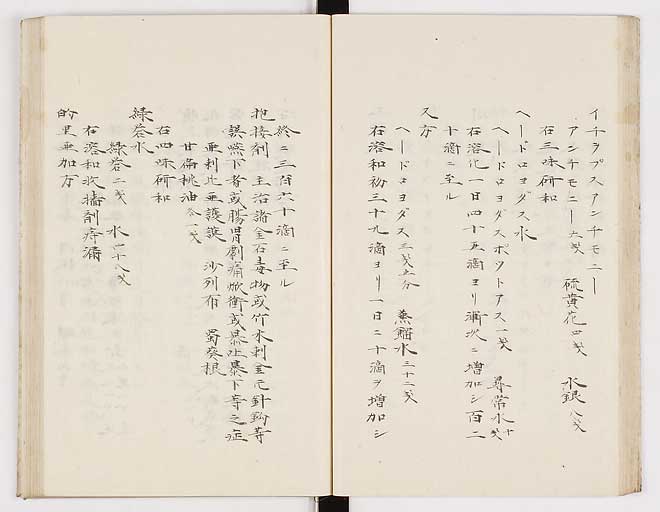 イチヲプスアンチモニー
アンチモニー六戔 硫黄花四戔 水銀八戔
右三味研和
ヘードロヨダス水
ヘードロヨダスポツトアス一戔 尋常水十戔
右溶化一日四十五滴ヨリ漸次ニ増加シ百二
十滴ニ至ル
又方
ヘードロヨダス三戔五分 蒸餾水三十二戔
右溶和初三十九滴ヨリ一日ニ十滴ヲ増加シ
終ニ三百六十滴ニ至ル
抱接剤 主治諸金石毒物或竹木刺金瓦針鈎等
誤嚥下者或腸胃劇痛焮衝或暴吐暴下等之症
亜剌比亜護謨 沙列布 蜀葵根
甘扁桃油各一戔
右四味研和
緑礬水
緑礬二戔 水四十八戔
右溶和収濇剤痒
的里亜加方